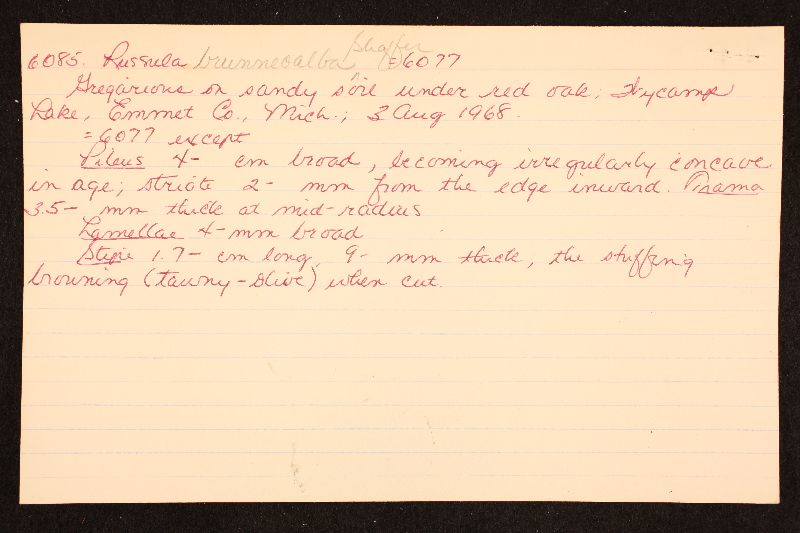 6085. Russula brunneoalba Shaffer (=6077
Gregarious on sandy soil under red oak; Wycamp
Lake, Emmet Co., Mich.; 3 Aug 1968.
=6077 except
Pileus 4- cm broad, becoming irregularly concave
in age; striate 2- mm from the edge inward. Trama
3.5- mm thick at mid-radius
Lamellae 4-mm broad
Stipe 1.7- cm long, 9- mm thick, the stuffing
browning (tawny-olive) when cut.